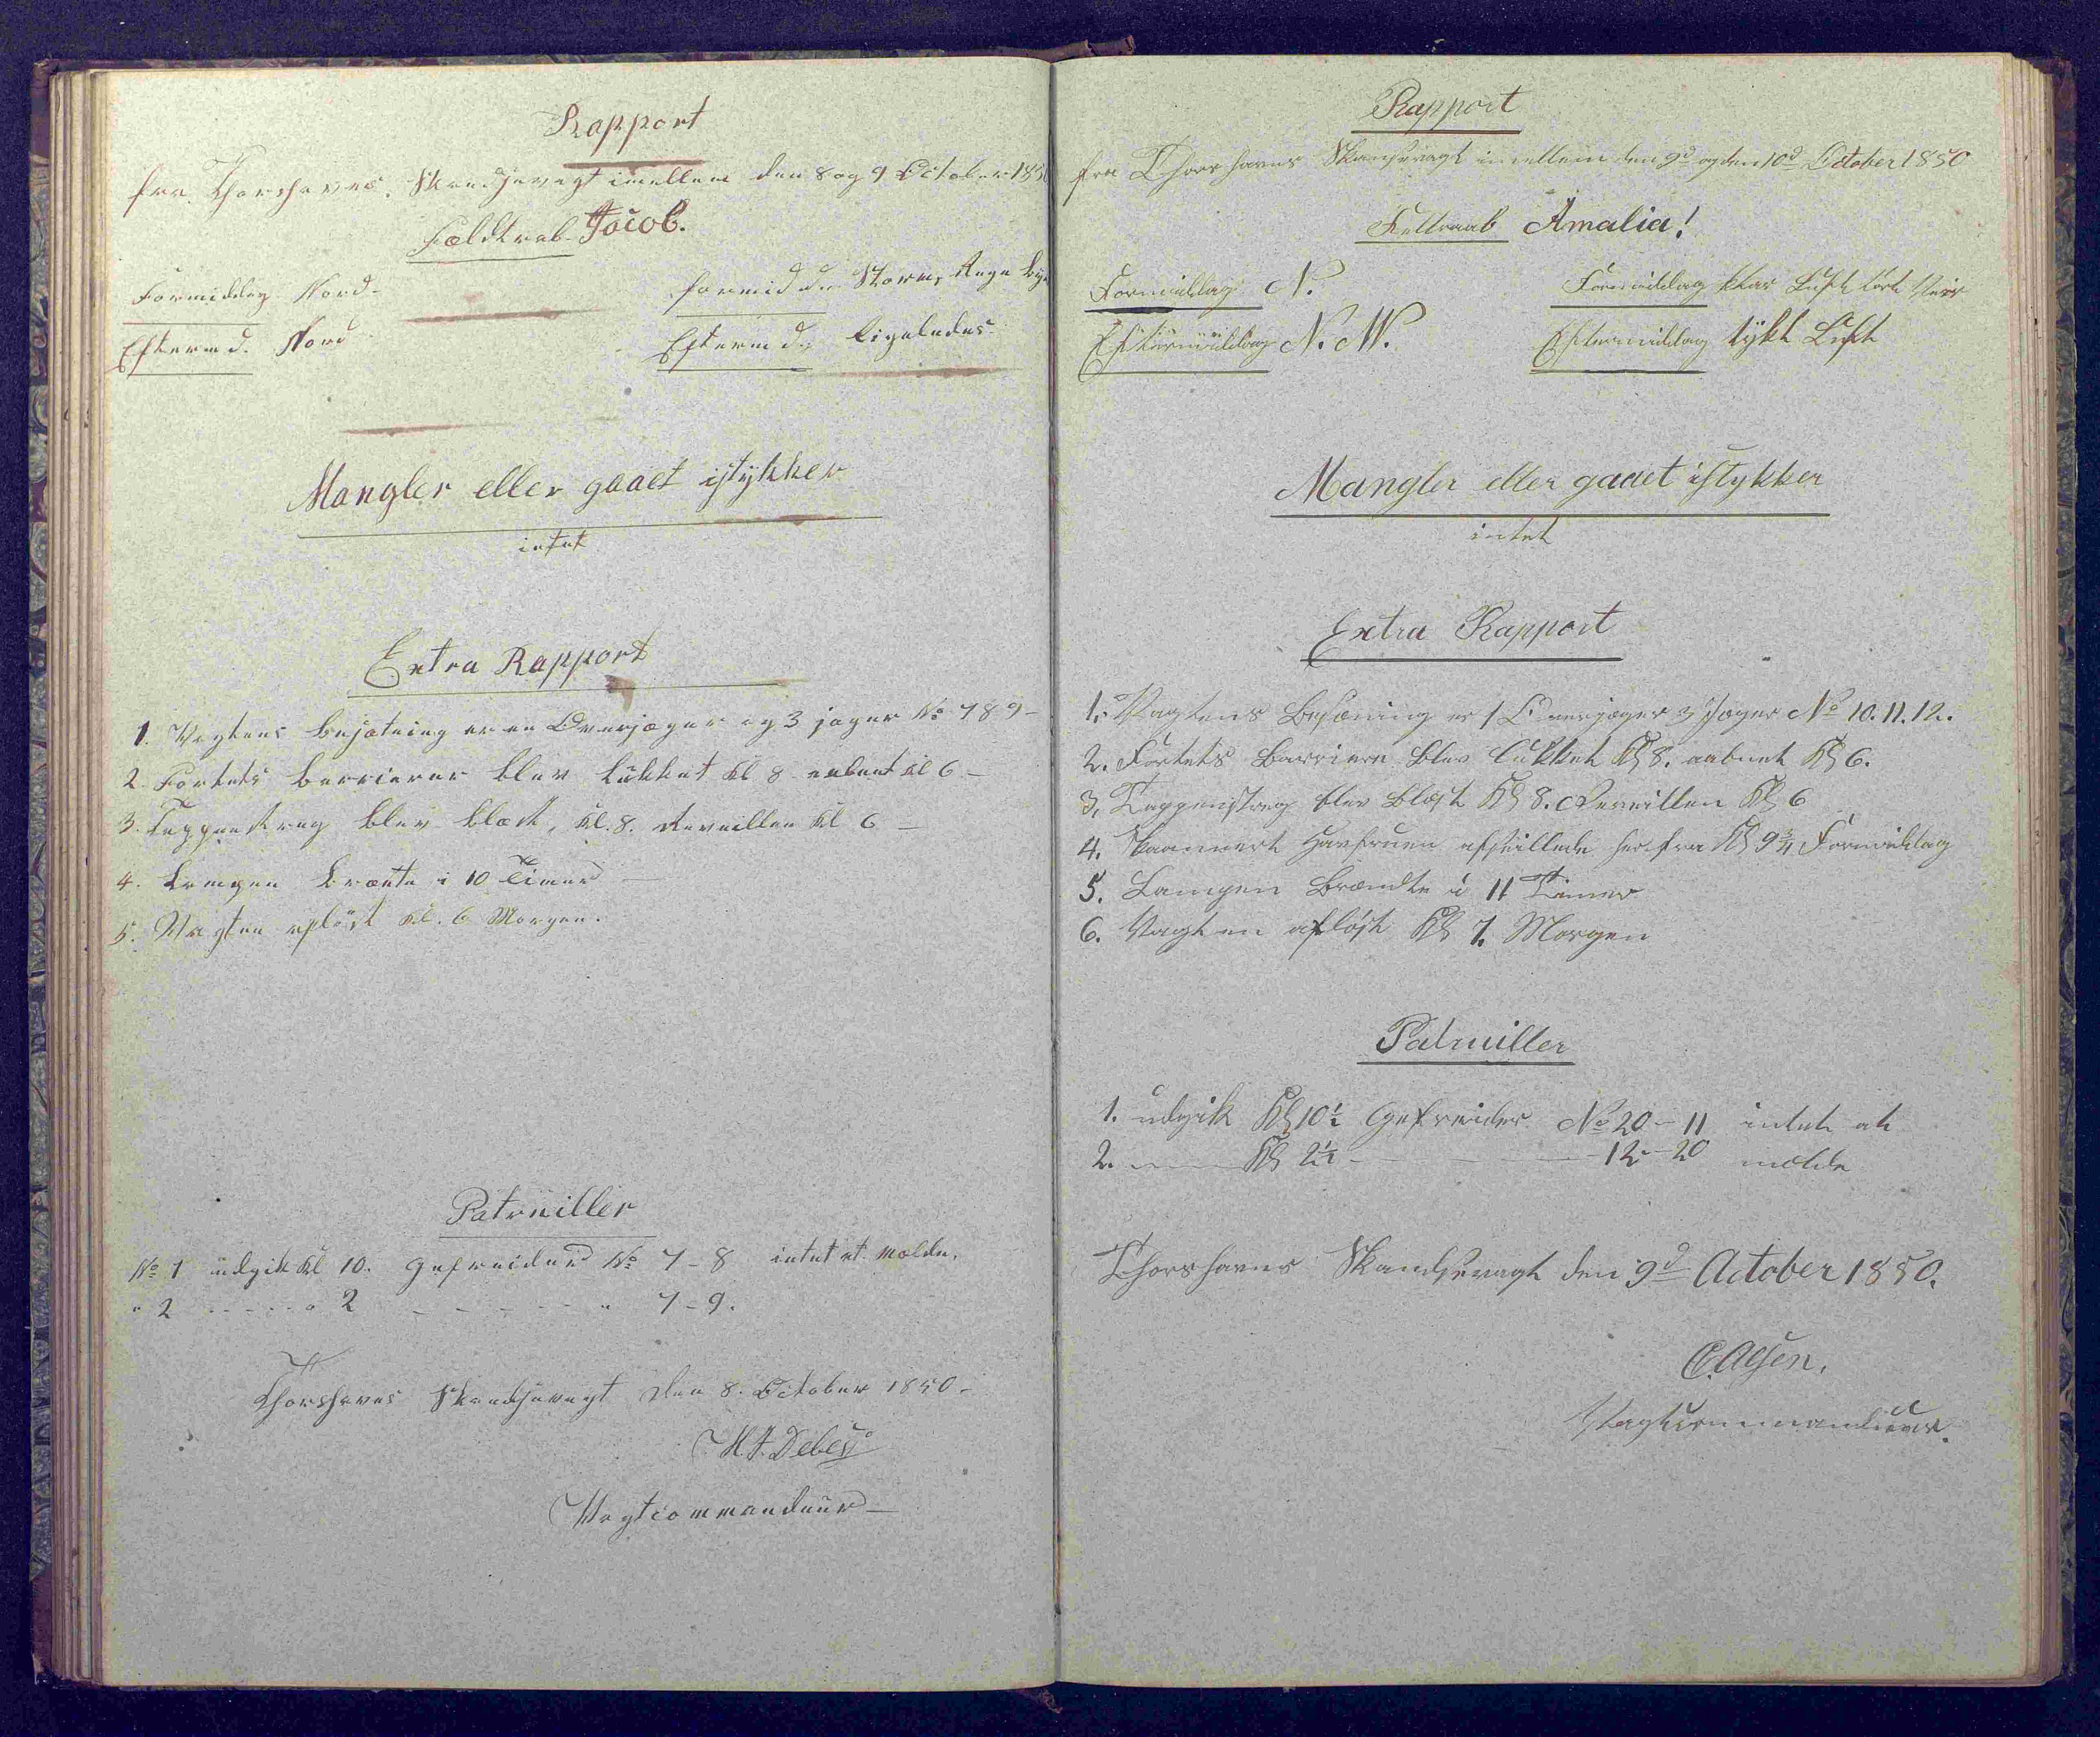 Rapport
fra Thorshavns Skandsevagt imellem den 8 og 9 October 185
Fældtraab Jacob.
Formiddag Nord - formidd. Storm, Regn Byge
Eftermd. Nord Eftermd. ligeledes
Mangler eller gaaet istykker
intet
Extra Rapport
1. Vagtens besætning er en Overjæger og 3 jæger No 7 8 9 -
2. Fortets barrierer blev lukket Kl 8 aabnet Kl 6 -
3. Tappenstreg blev blæst, Kl. 8. Reveillen Kl 6 -
4. Lampen brænte i 10 Timer -
5. Vagten afløst Kl. 6 Morgen.
Patruiller
No 1 udgik Kl 10. Gefreider No 7 - 8 intet at mælde.
" 2 - - - - " 2 - - - - - " 7 - 9.
Thorshavns Skandsevagt den 8. October 1850 -
H. J. Debes
Vagtcommandeur -
Rapport
fra Thorshavns Skandsevagt imellem den 9d og den 10d October 1850
Feltraab Amalia!
Formiddag N. Formiddag klar Luft tørt Veir
Eftermiddag N. W. Eftermiddag tykt Luft
Mangler eller gaaet istykker
intet
Extra Rapport
1. Vagtens Besætning er 1 Overjæger 3 Jæger No 10. 11. 12.
2. Fortets Barriere blev lukket Kl 8. aabnet Kl 6.
3. Tappenstreg blev blæst Kl 8. Reveillen Kl 6
4. Skonnert Havfruen afseillede herfra Kl 9¾ Formiddag
5. Lampen Brændte i 11 Timer
6. Vagten afløst Kl 7. Morgen
Patruiller
1. udgik Kl 10½ Gefreider No 20 - 11 intet at
2. — Kl 2½ - - - 12 - 20 mælde
Thorshavns Skandsevagt den 9d October 1850.
Olsen.
Vagtcommandeur.